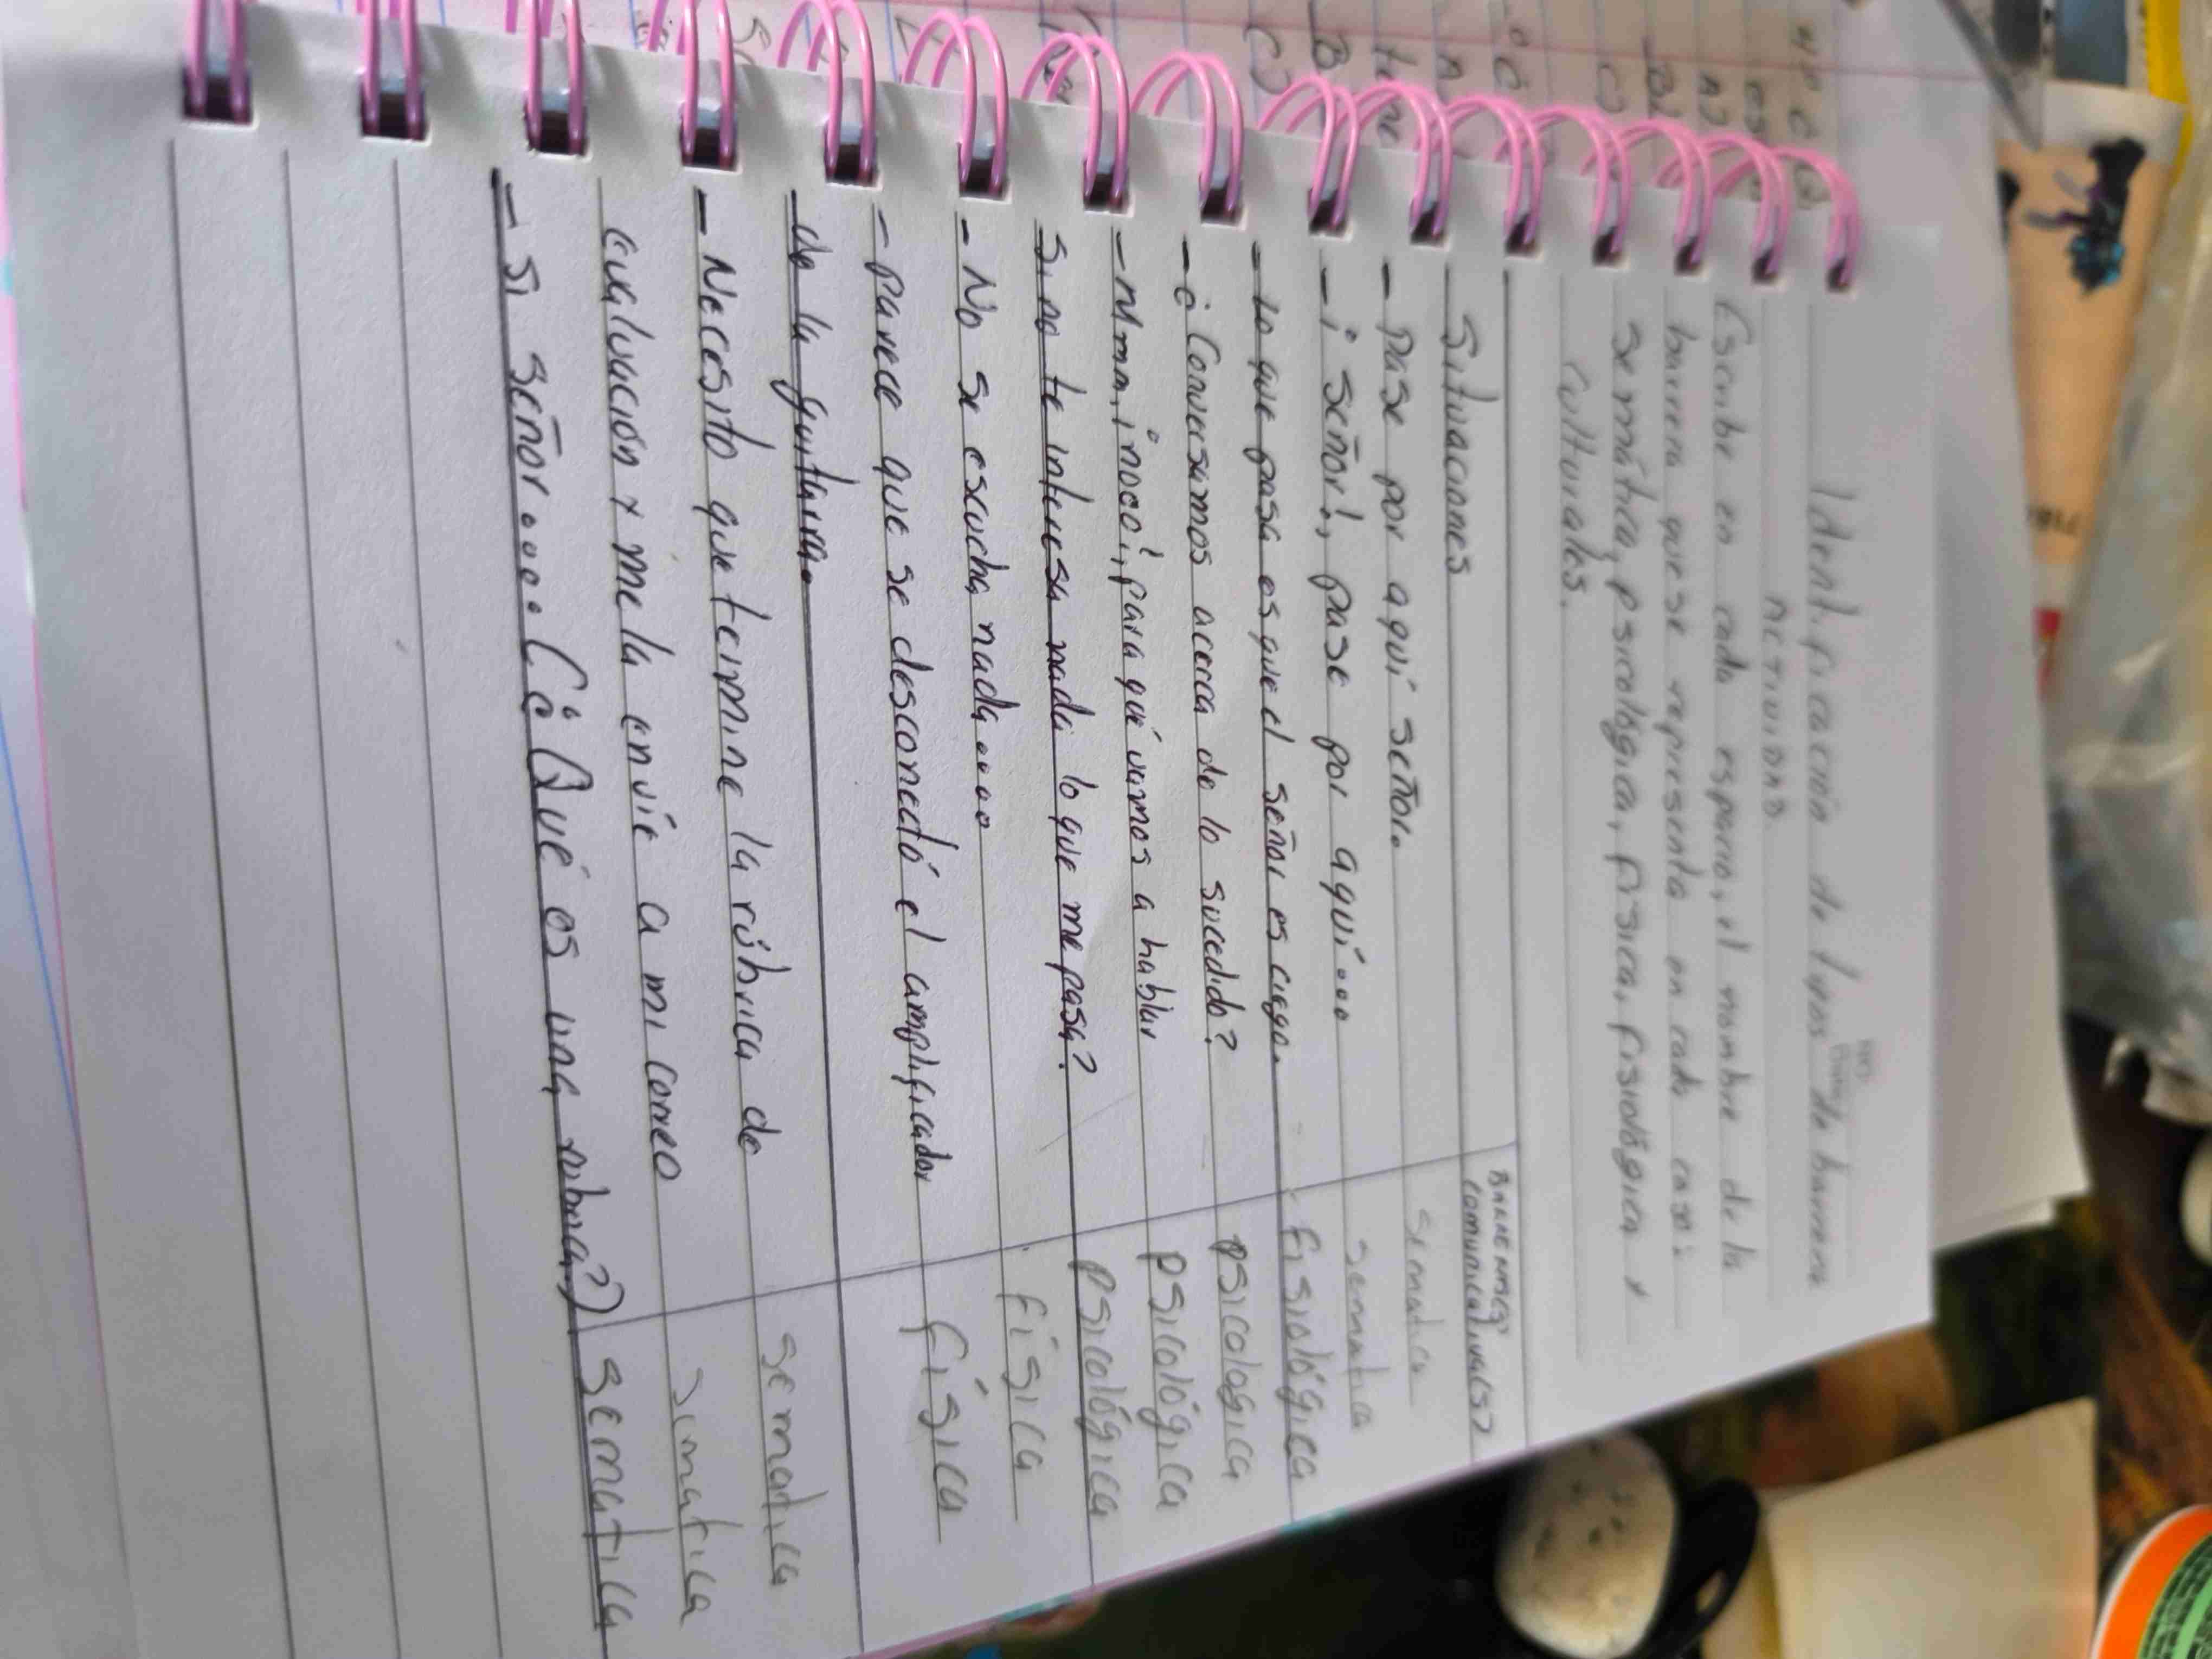 Identificación de tipos de barrera
Actividad
Escribe en cada espacio, el nombre de la
barrera que se representa en cada caso:
semática, psicológica, física, fisiológica y
culturales.
Situaciones
BARRERAS
comunicativa(s)
- Pase por aquí señor.
sematica
- ¡ señor!, pase por aquí....
sematica
- Lo que pasa es que el señor es ciego.
fisiológica
- ¿Conversamos acerca de lo sucedido?
psicologica
- Mmm, ¡nooo!, para qué vamos a hablar
psicológica
si no te interesa nada lo que me pasa?
psicológica
- No se escucha nada.....
física
- parece que se desconectó el amplificador
física
de la guitarra.
- Necesito que termine la rúbrica de
sematica
evaluación y me la envíe a mi correo
sematica
- Si señor..... (¿Qué es una rubrica?)
sematica